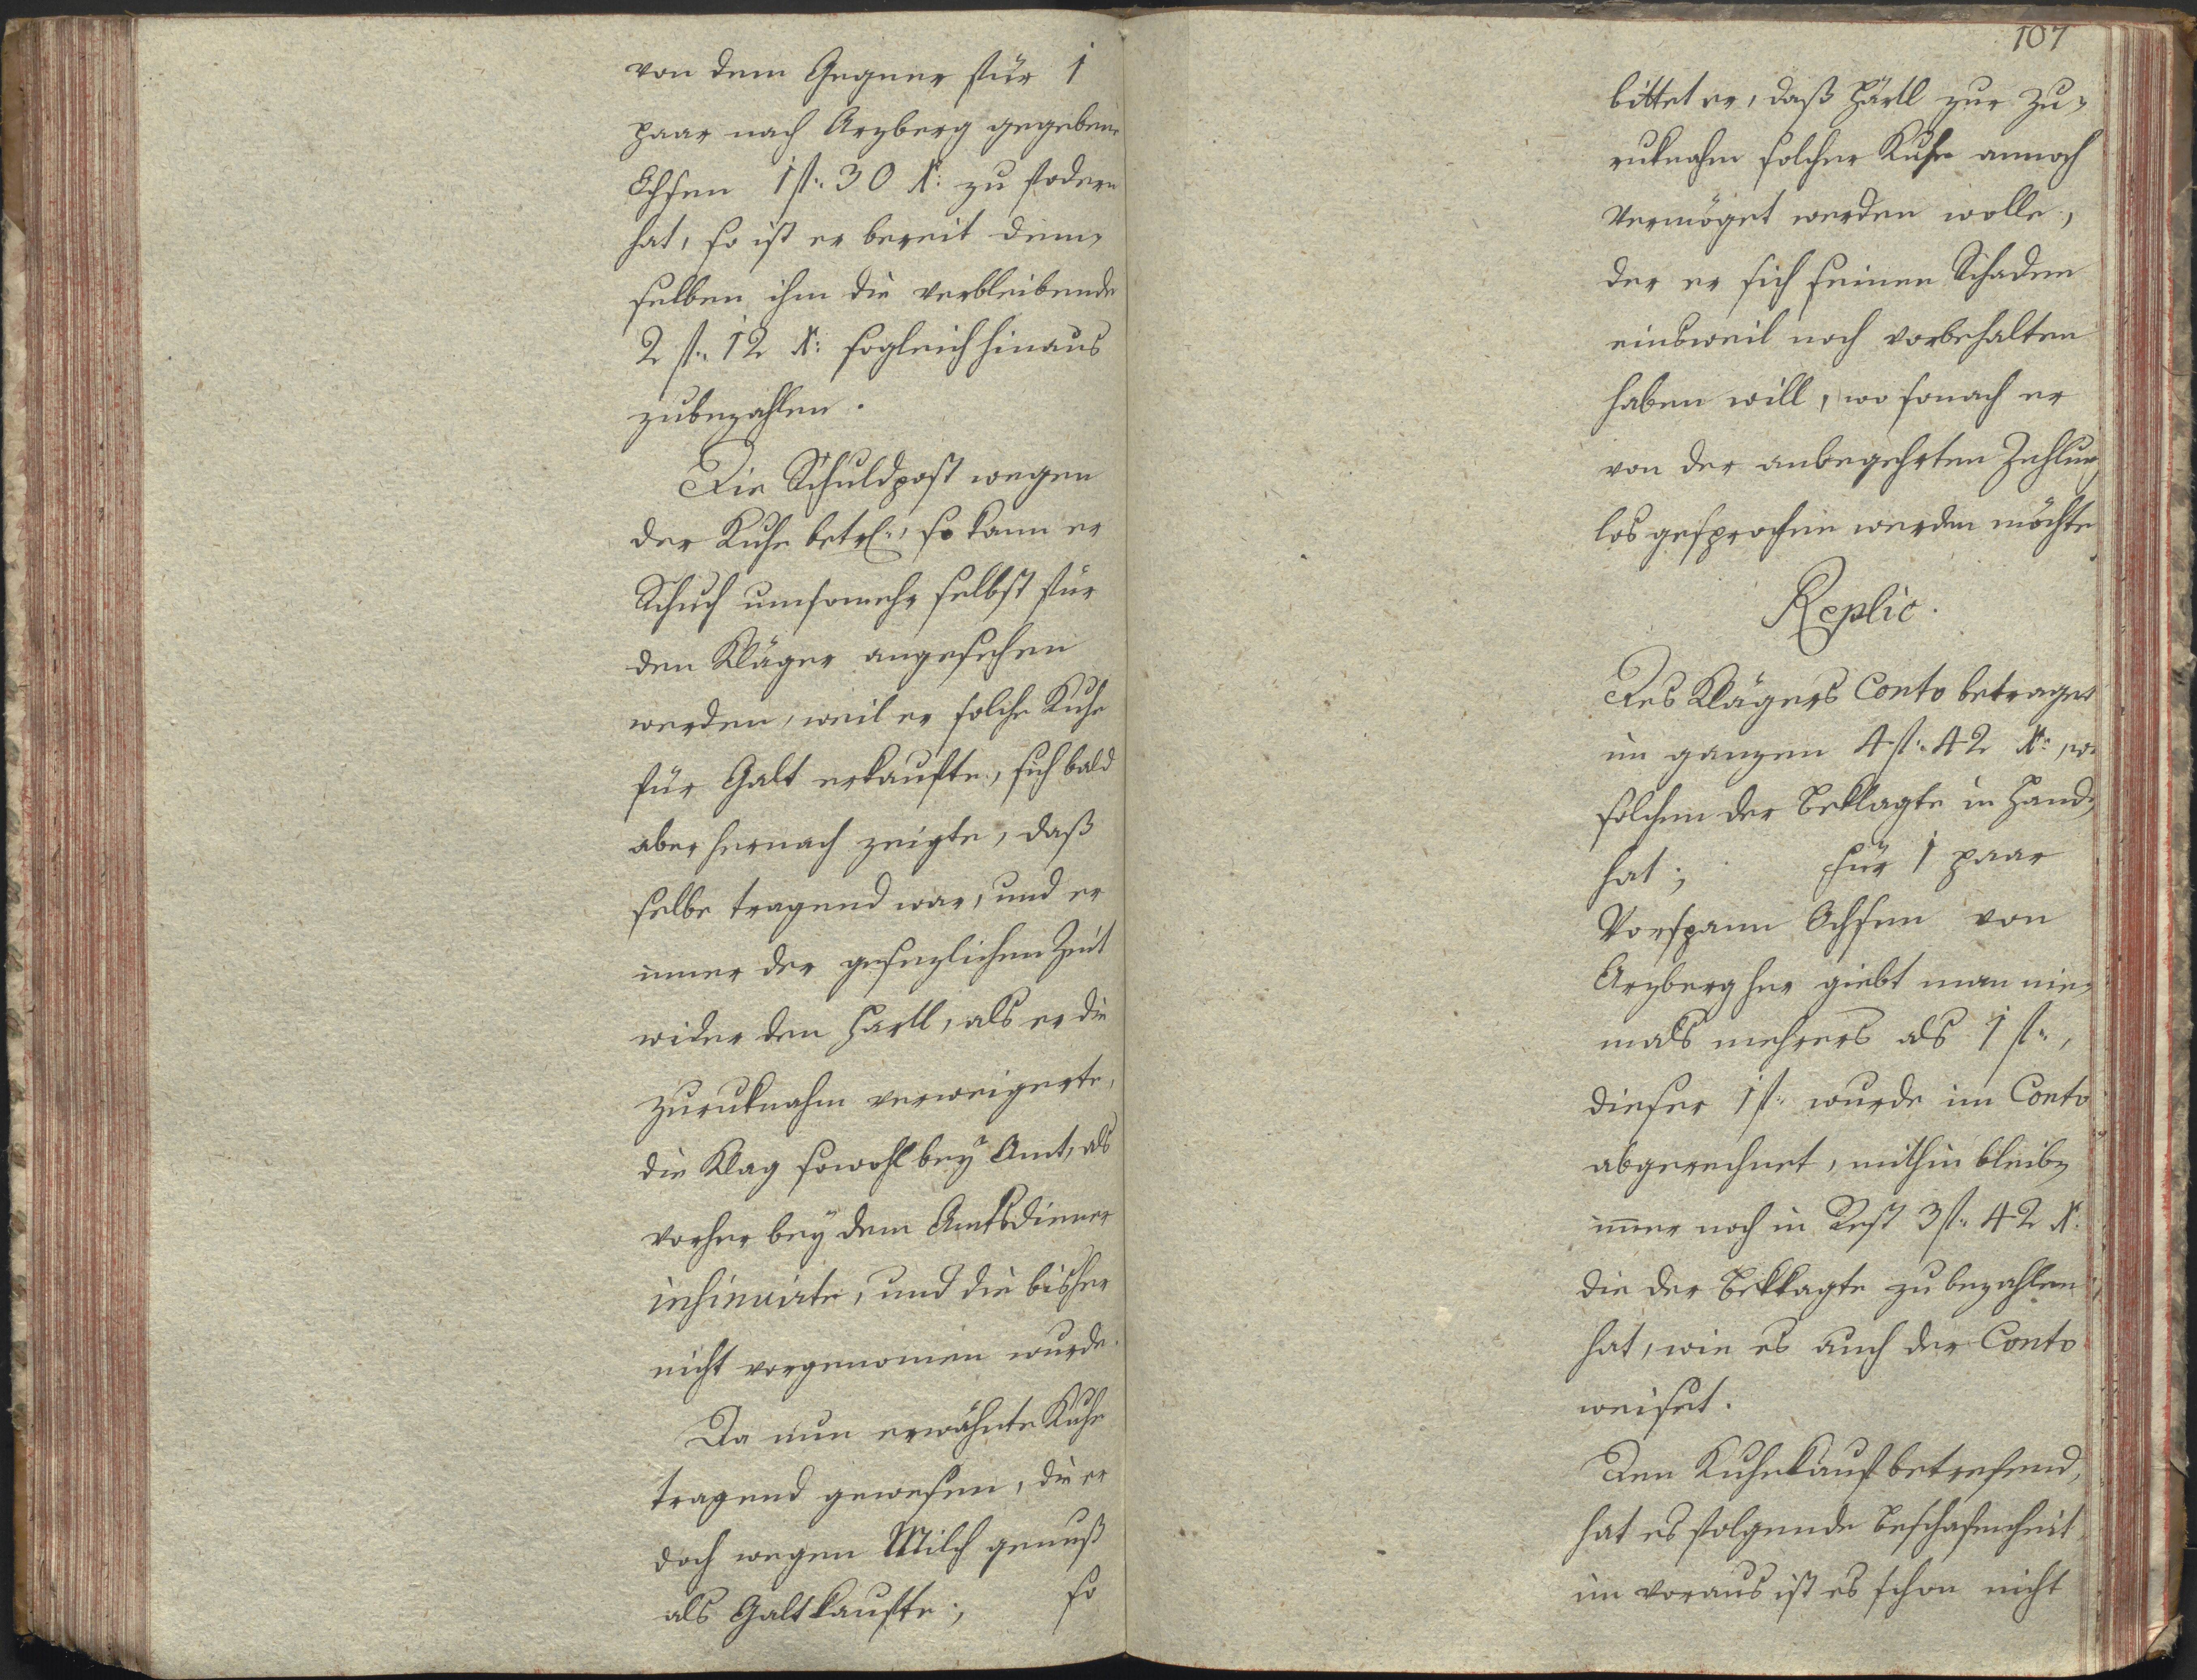 von dem Gegner für 1
paar nach Arzberg gegebene
Ochsen 1 fl: 30 X: zu fodern
hat, so ist er bereit dem-
selben ihm die verbleibende
2 fl: 12 X: sogleich hinaus
zubezahlen.
Die Schuldpost wegen
der Kuhe betrf:, so kann er
Schuch umsomehr selbst für
den Kläger angesehen
werden, weil er solche Kuhe
für Galt erkaufte, sich bald
aber hernach zeigte, daß
selbe tragend war, und er
inner der gesezlichen Zeit
wider den Hartl, als er die
Zuruknahm verweigerte,
die Klag sowohl bey Amt, als
vorher bey dem Amtsdiener
insinuirte, und die bisher
nicht vorgenomen wurde.
Da nun erwähnte Kuhe
tragend gewesen, die er
doch wegen Milch genuß
als Galt kaufte; so
107
bittet er, daß Härtl zur Zu-
ruknahm solcher Kuhe annoch
vermöget werden wolle,
der er sich seinen Schaden
einsweil noch vorbehalten
haben will, wo sonach er
von der anbegehrten Zahlung
los gesprochen werden möchte
Replic.
Des Klägers Conto betraget
im ganzen 4 fl: 42 X:, wie
solchen der Beklagte in Hand-
hat; Für 1 paar
Vorspann Ochsen von
Arzberg her giebt man nie-
mals mehrers als 1 fl:,
dieser 1 fl: wurde im Conto
abgerechnet, mithin bleib-
imer noch in Rest 3 fl: 42 X:
die der Beklagte zu bezahlen
hat, wie es auch der Conto
weiset.
Den Kuhekauf betrefend,
hat es folgende Beschafenheit
im voraus ist es schon nicht